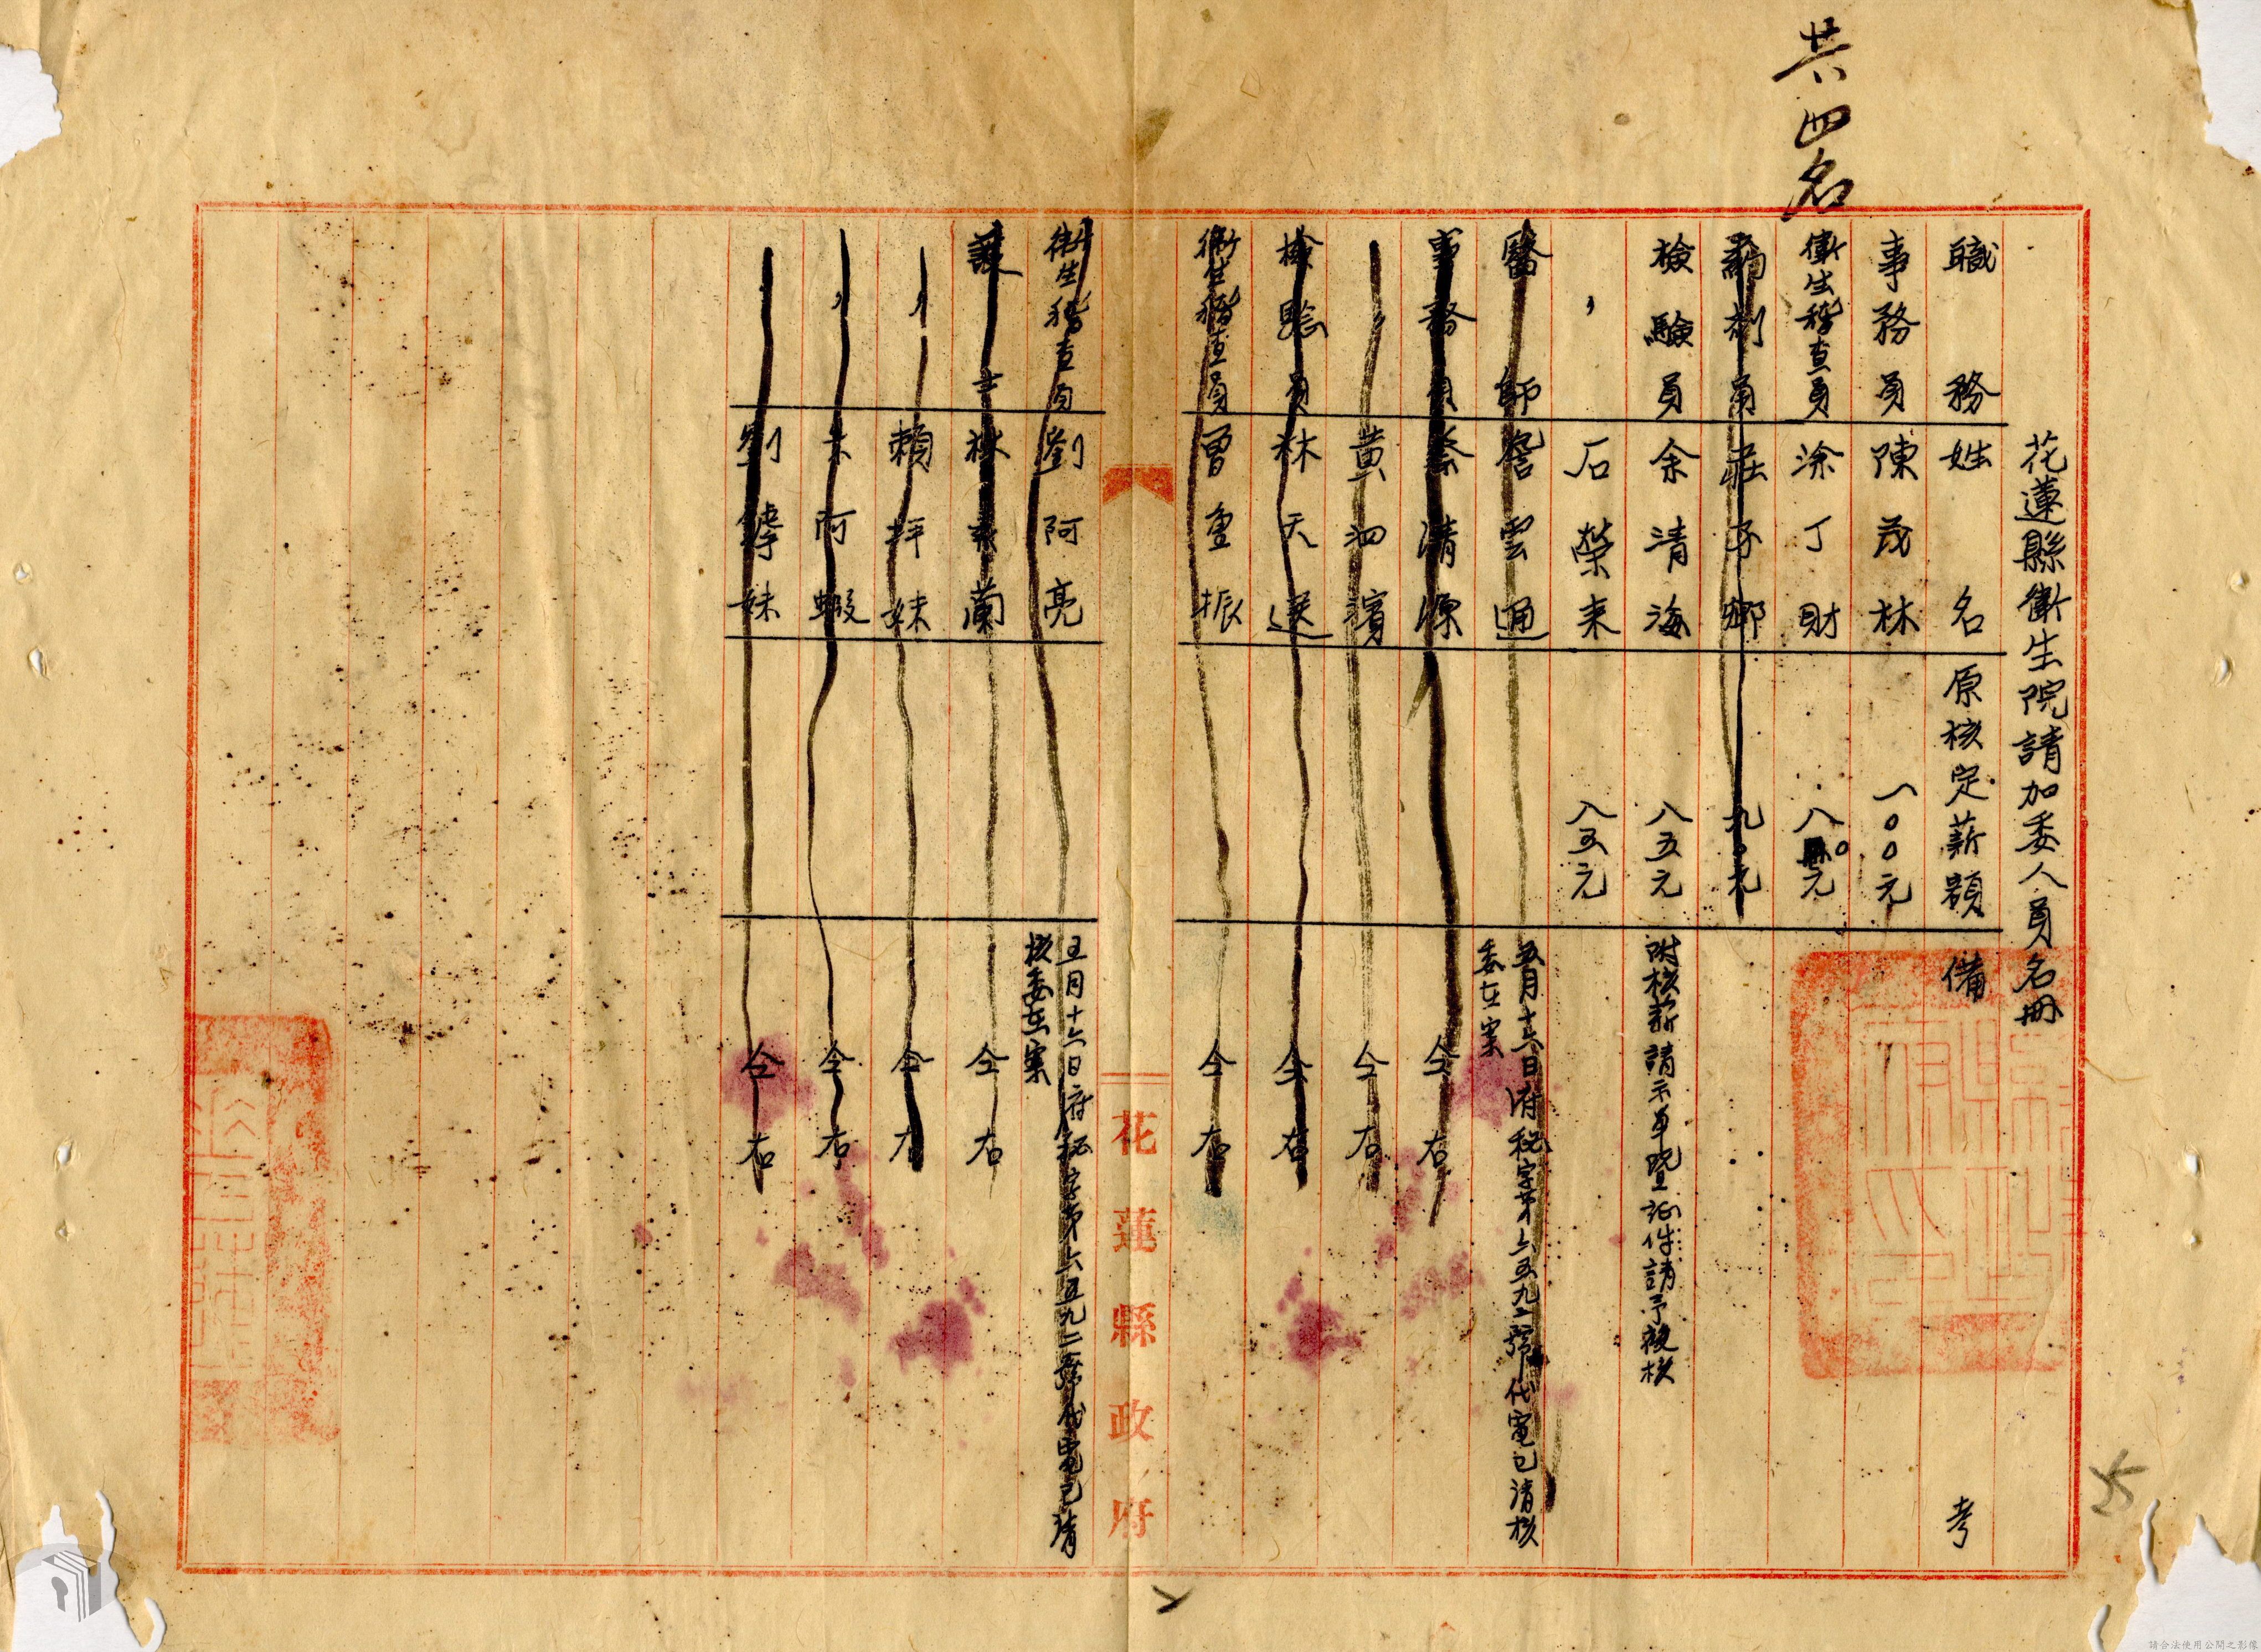 共四名
花蓮縣衛生院請加委人員名冊
職務 姓名 原核定薪額 備考
事務員 陳茂林 一〇〇元
衛生稽查員 涂丁財 八〇元
藥剤員 莊子鄉 九〇元
檢驗員 余清海 八五元 附核薪請示单暨証件請予核
〃 石榮来 八五元
醫師 詹雲通 五月十六日府秘字第六五九二號代電已清核
委在案
事務員 清源 仝右
〃 黄泗濱 仝右
檢驗員 林天送 仝右
衛生稽查員 曾重振 仝右
花蓮縣政府
衛生稽查員 劉阿亮 五月十六日府秘字第六五九二號代電已清
核委在案
護士 林蘭 仝右
〃 賴拜妹 仝右
〃 朱阿蝦 仝右
劉妹 仝右
25
請合法使用公開之影像